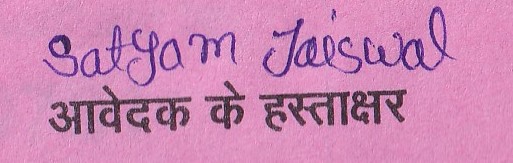 Satyam Jaiswal
आवेदक के हस्ताक्षर